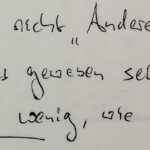 nicht „Andere
gewesen sei
wenig, wie